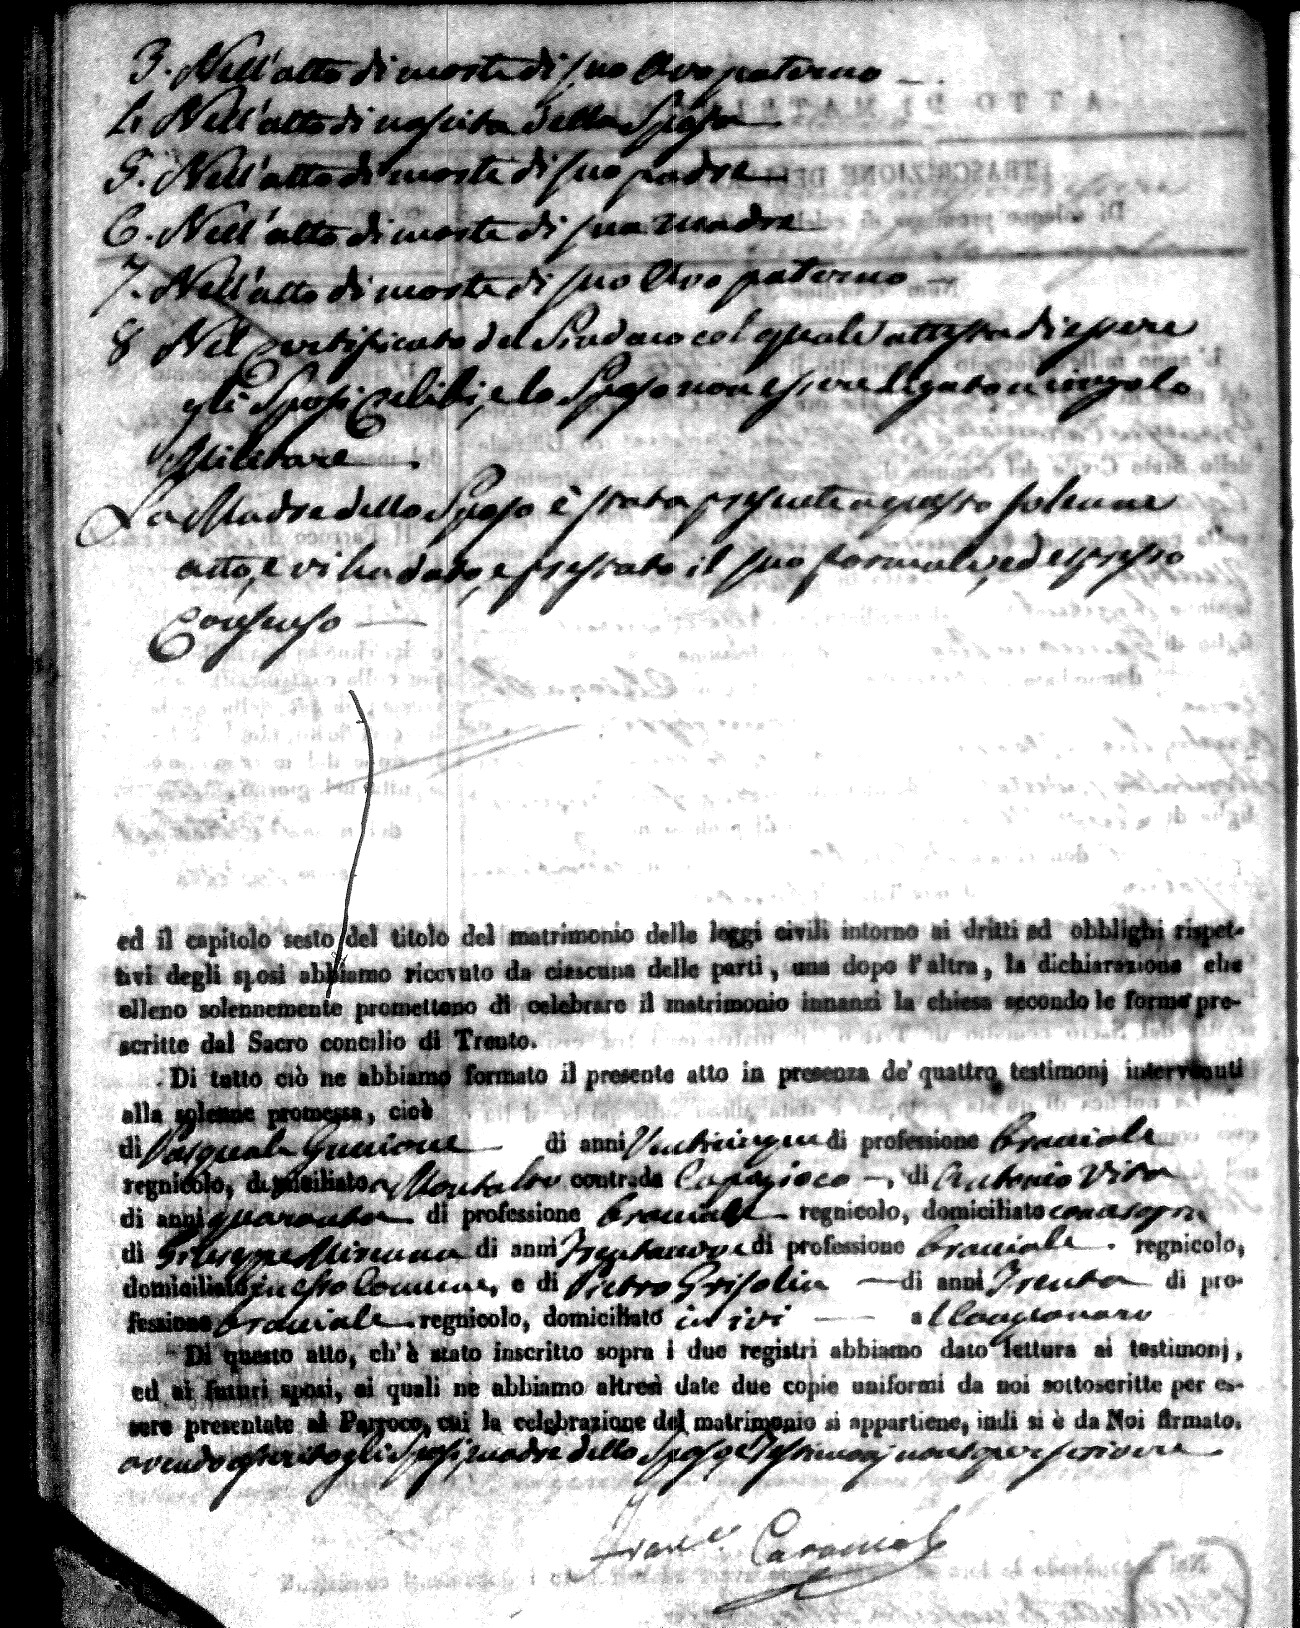 3. Nell'atto di morte di suo Avo paterno
4. Nell'atto di nascita della Sposa
5. Nell'atto di morte di suo padre
6. Nell'atto di morte di sua madre
7. Nell'atto di morte di suo Avo paterno
8 Nel Certificato del Sindaco col quale attesta di essere
gli Sposi Celibi, e lo Sposo non essere ligato a vincolo
Militare
La Madre dello Sposo è stata presente a questo solenne
atto, e vi ha dato, e prestato il suo formale, ed espresso
Consenso
ed il capitolo sesto del titolo del matrimonio delle leggi civili intorno ai dritti ed obblighi rispet-
tivi degli sposi abbiamo ricevuto da ciascuna delle parti, una dopo l'altra, la dichiarazione che
elleno solennemente promettono di celebrare il matrimonio innanzi la chiesa secondo le forme pre-
scritte dal Sacro concilio di Trento.
Di tutto ciò ne abbiamo formato il presente atto in presenza de' quattro testimonj intervenuti
alla solenne promessa, cioè
di Pasquale di anni Venticinque di professione Bracciale
regnicolo, domiciliato a Montalto contrada di Antonio
di anni quaranta di professione Bracciale regnicolo, domiciliato come sopra
di Giuseppe di anni Trentanove di professione Bracciale regnicolo,
domiciliato in esso Comune, e di Pietro Grisolia di anni Trenta di pro-
fessione Bracciale regnicolo, domiciliato ivi
Di questo atto, ch'è stato inscritto sopra i due registri abbiamo dato lettura ai testimonj,
ed ai futuri sposi, ai quali ne abbiamo altresì date due copie uniformi da noi sottoscritte per es-
sere presentate al Parroco, cui la celebrazione del matrimonio si appartiene, indi si è da Noi firmato.
avendo asserito gli Sposi, madre dello Sposo, e Testimonj non saper scrivere